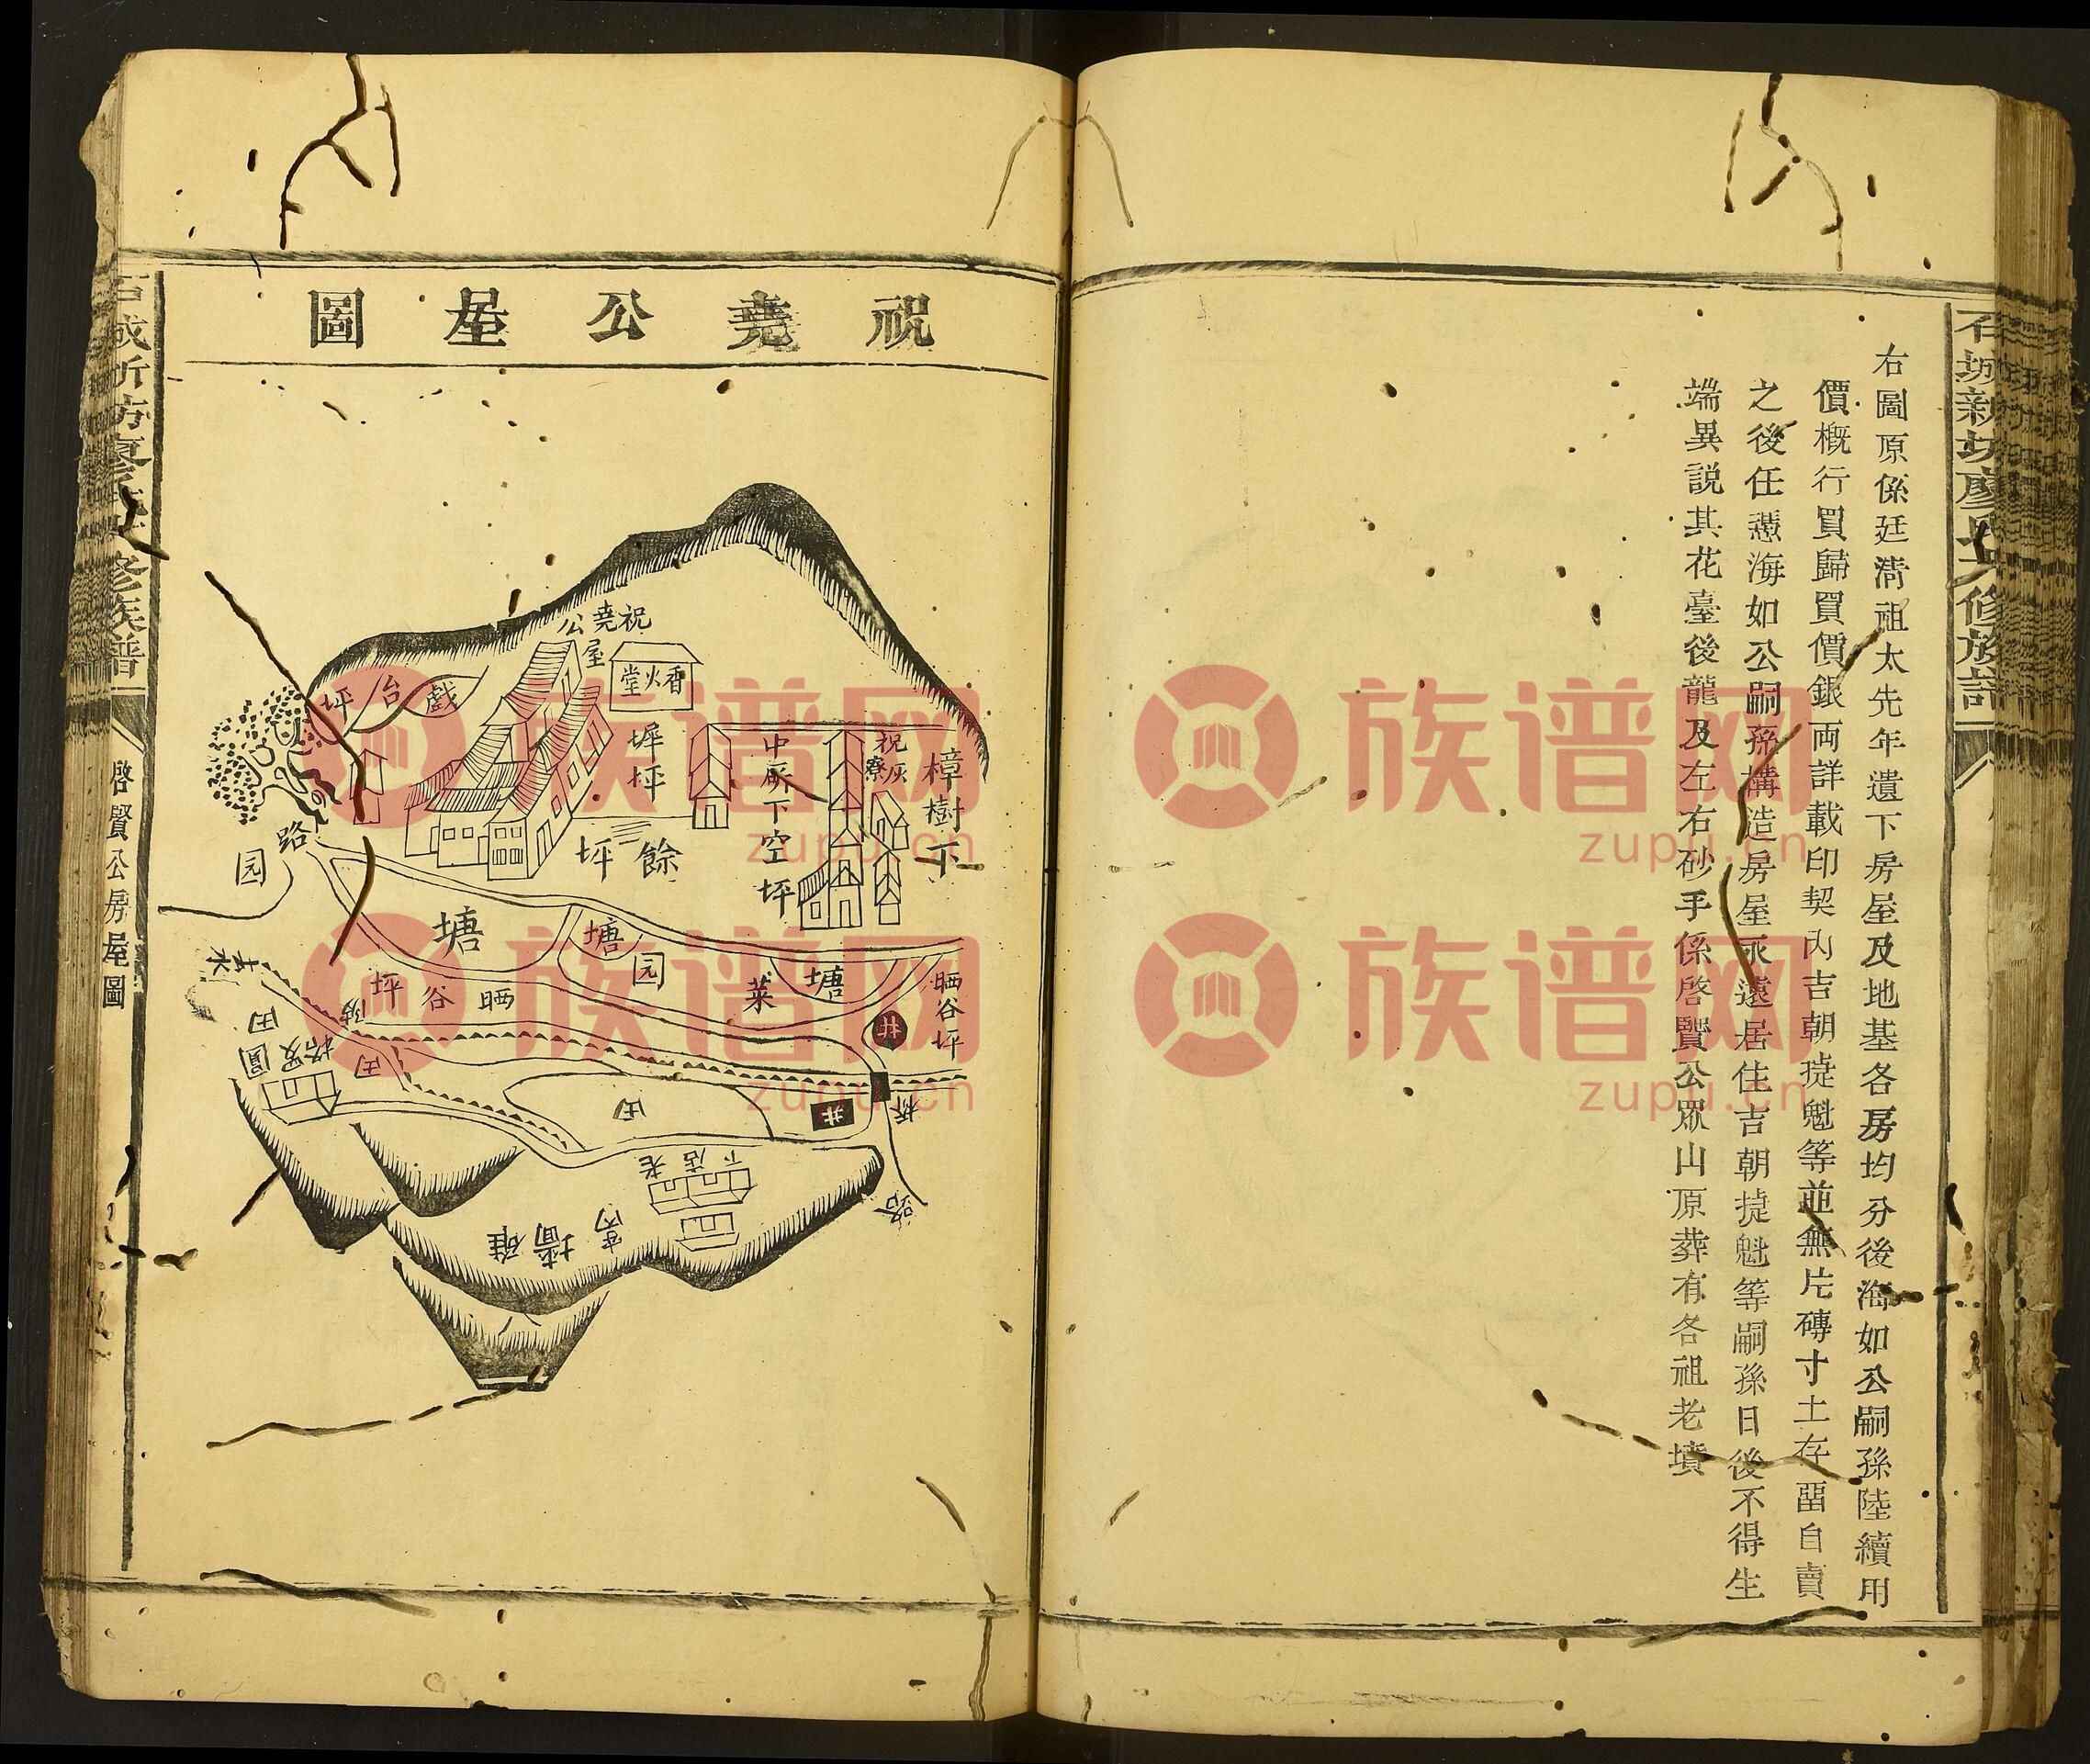 石城新坊廖氏修族譜
右圖原係廷淸祖太先年遺下房屋及地基各房均分後海如公嗣孫陸續用
價概行買歸買價銀両詳載印契内吉朝㨗魁等並無片磚寸土存畱自賣
之後任憑海如公嗣孫構造房屋永遠居住吉朝㨗魁等嗣孫日後不得生
端異説其花臺後龍及左右砂手係啓賢公眾山原葬有各祖老墳
祝堯公屋圖
祝堯公屋
香火堂
戲台坪
墀坪
中廍下空坪
祝灰寮
樟樹下
餘坪
路
园
塘
塘
园
塘
菜
晒谷坪
晒谷坪
井
井
桥
田
田
田
圓
老店下
路
墻
碓
啓賢公房屋圖
族谱网
zupu.cn
族谱网
zupu.cn
族谱网
zupu.cn
族谱网
zupu.cn